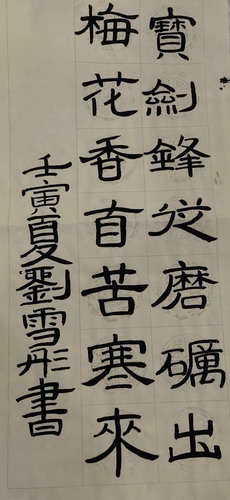 寶劍鋒從磨礪出
梅花香自苦寒來
壬寅夏劉雪彤書